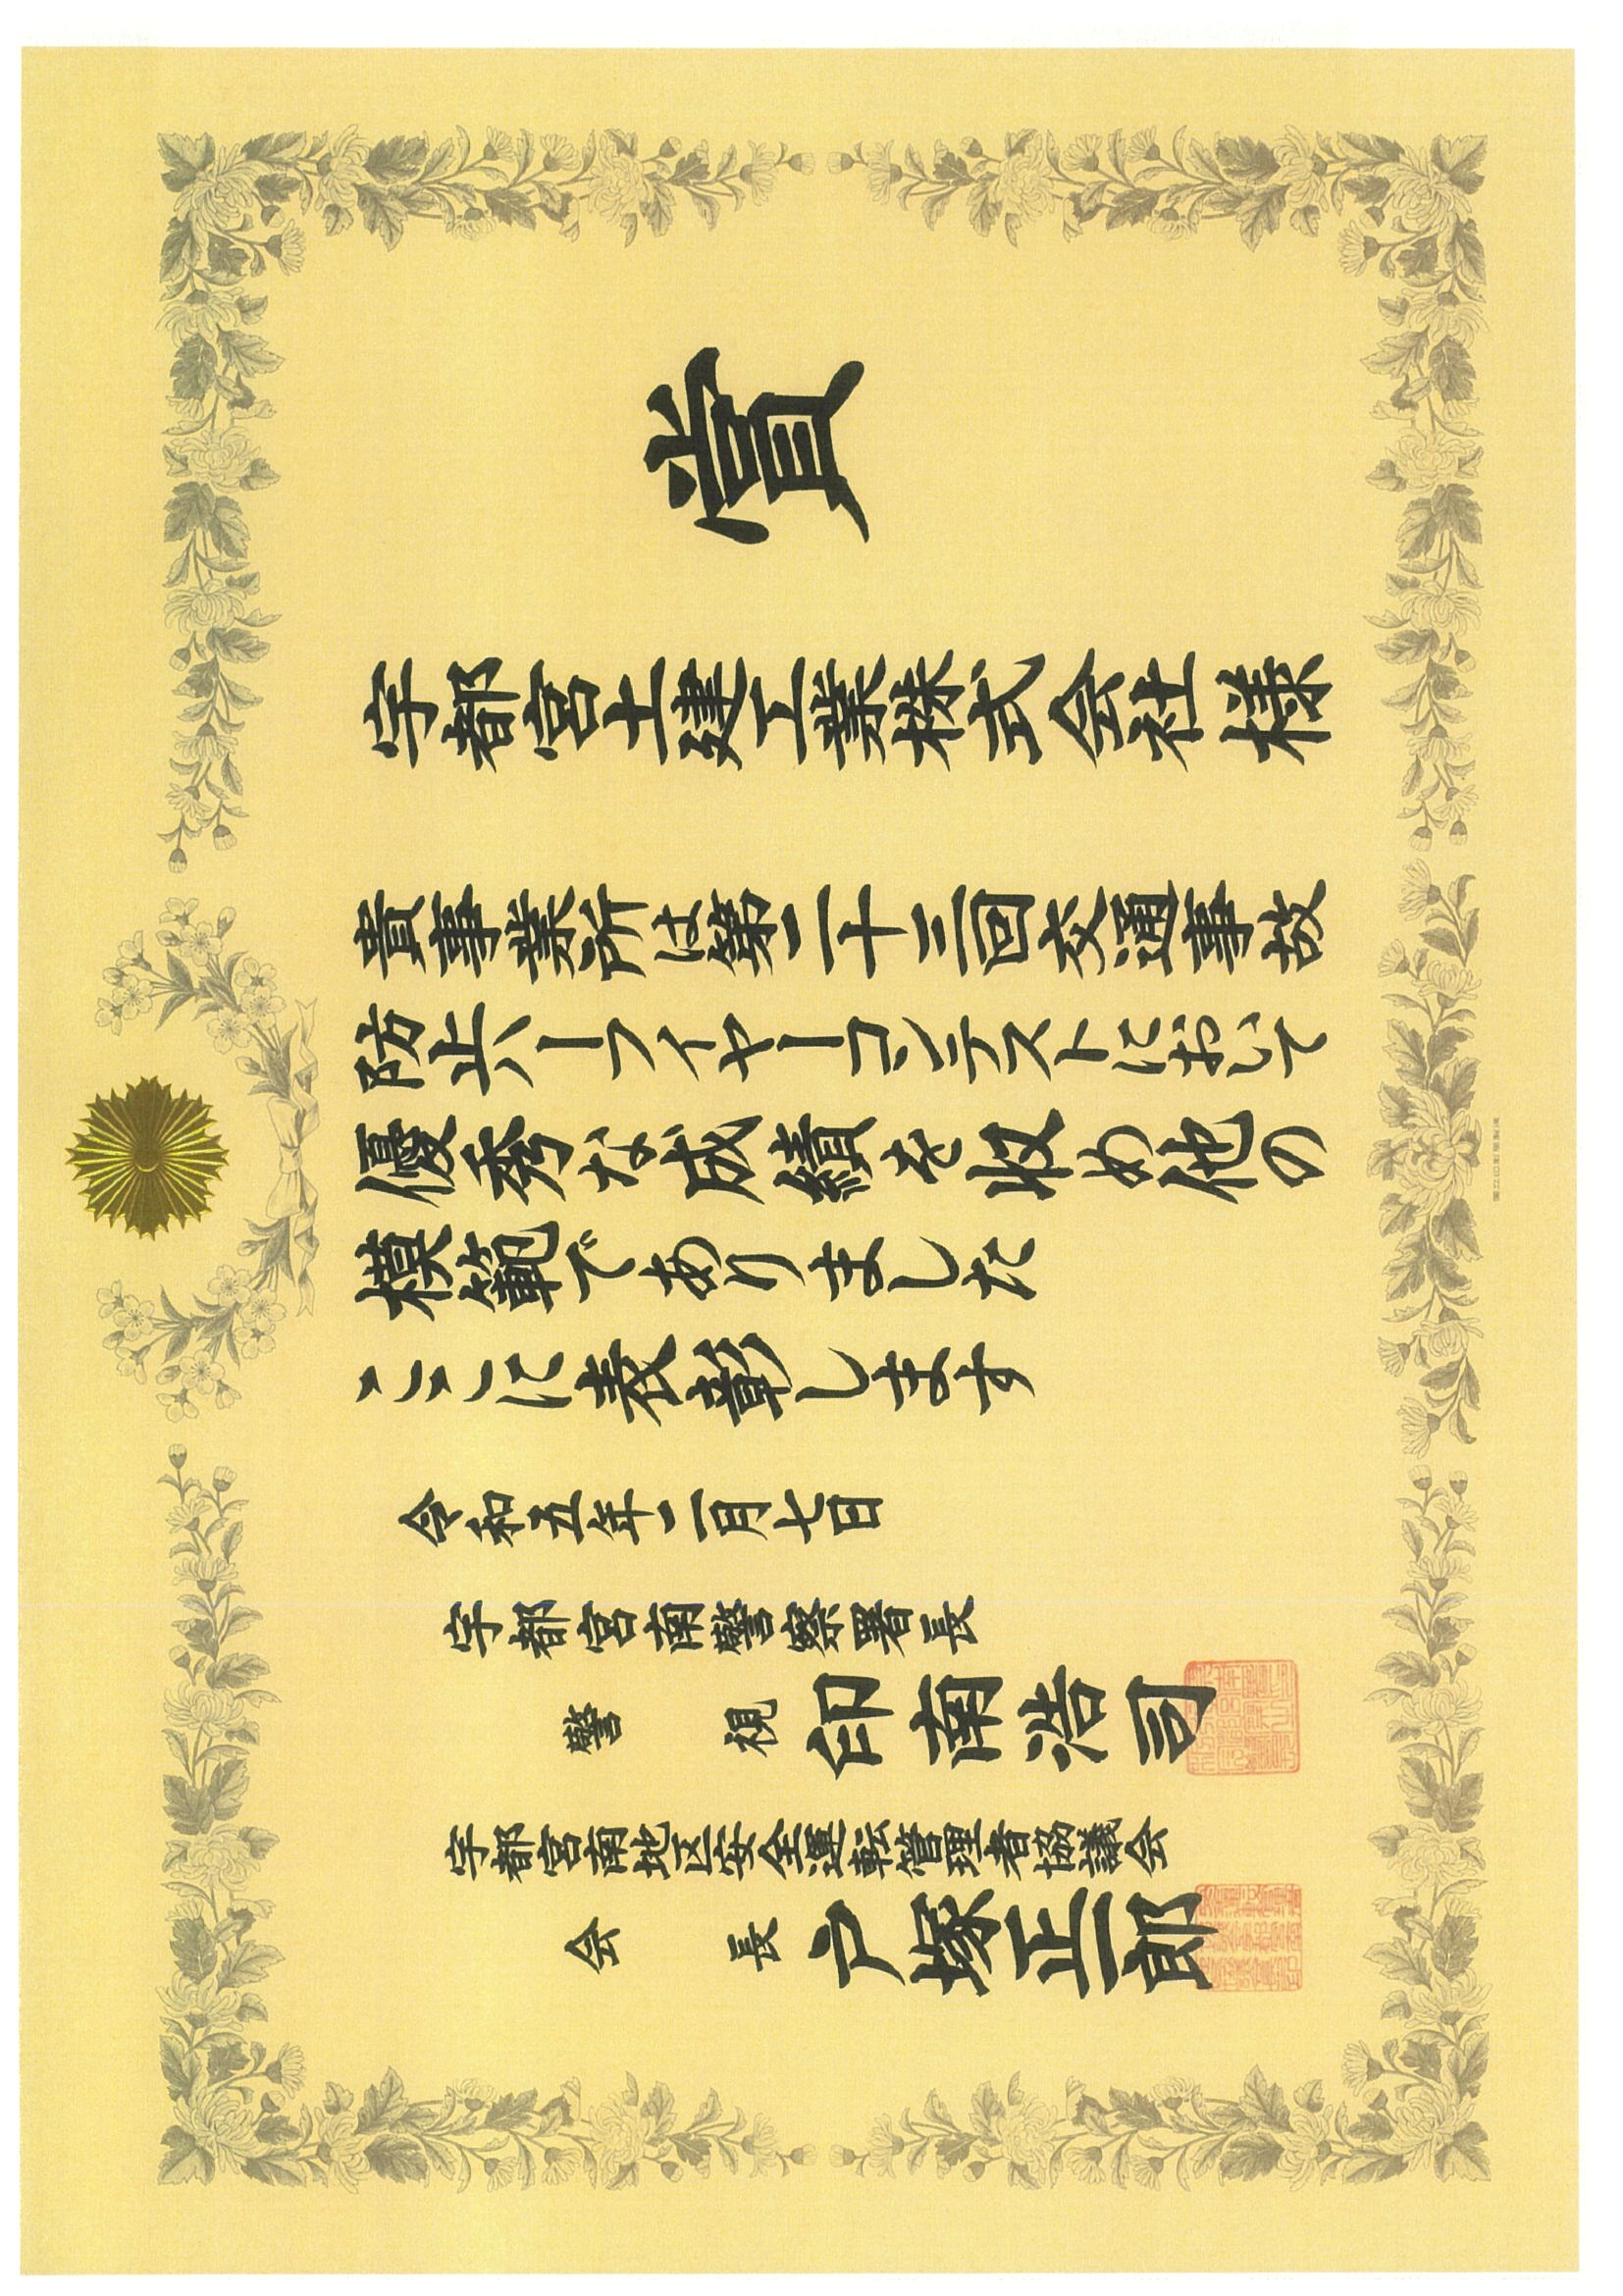 賞
宇都宮土建工業株式会社様
貴事業所は第二十三回交通事故
防止ハーフイヤーコンテストにおいて
優秀な成績を収め他の
模範でありました
ここに表彰します
令和五年二月七日
宇都宮南警察署長
警視 印南浩司
宇都宮南地区安全運転管理者協議会
会長 戸塚正一郎